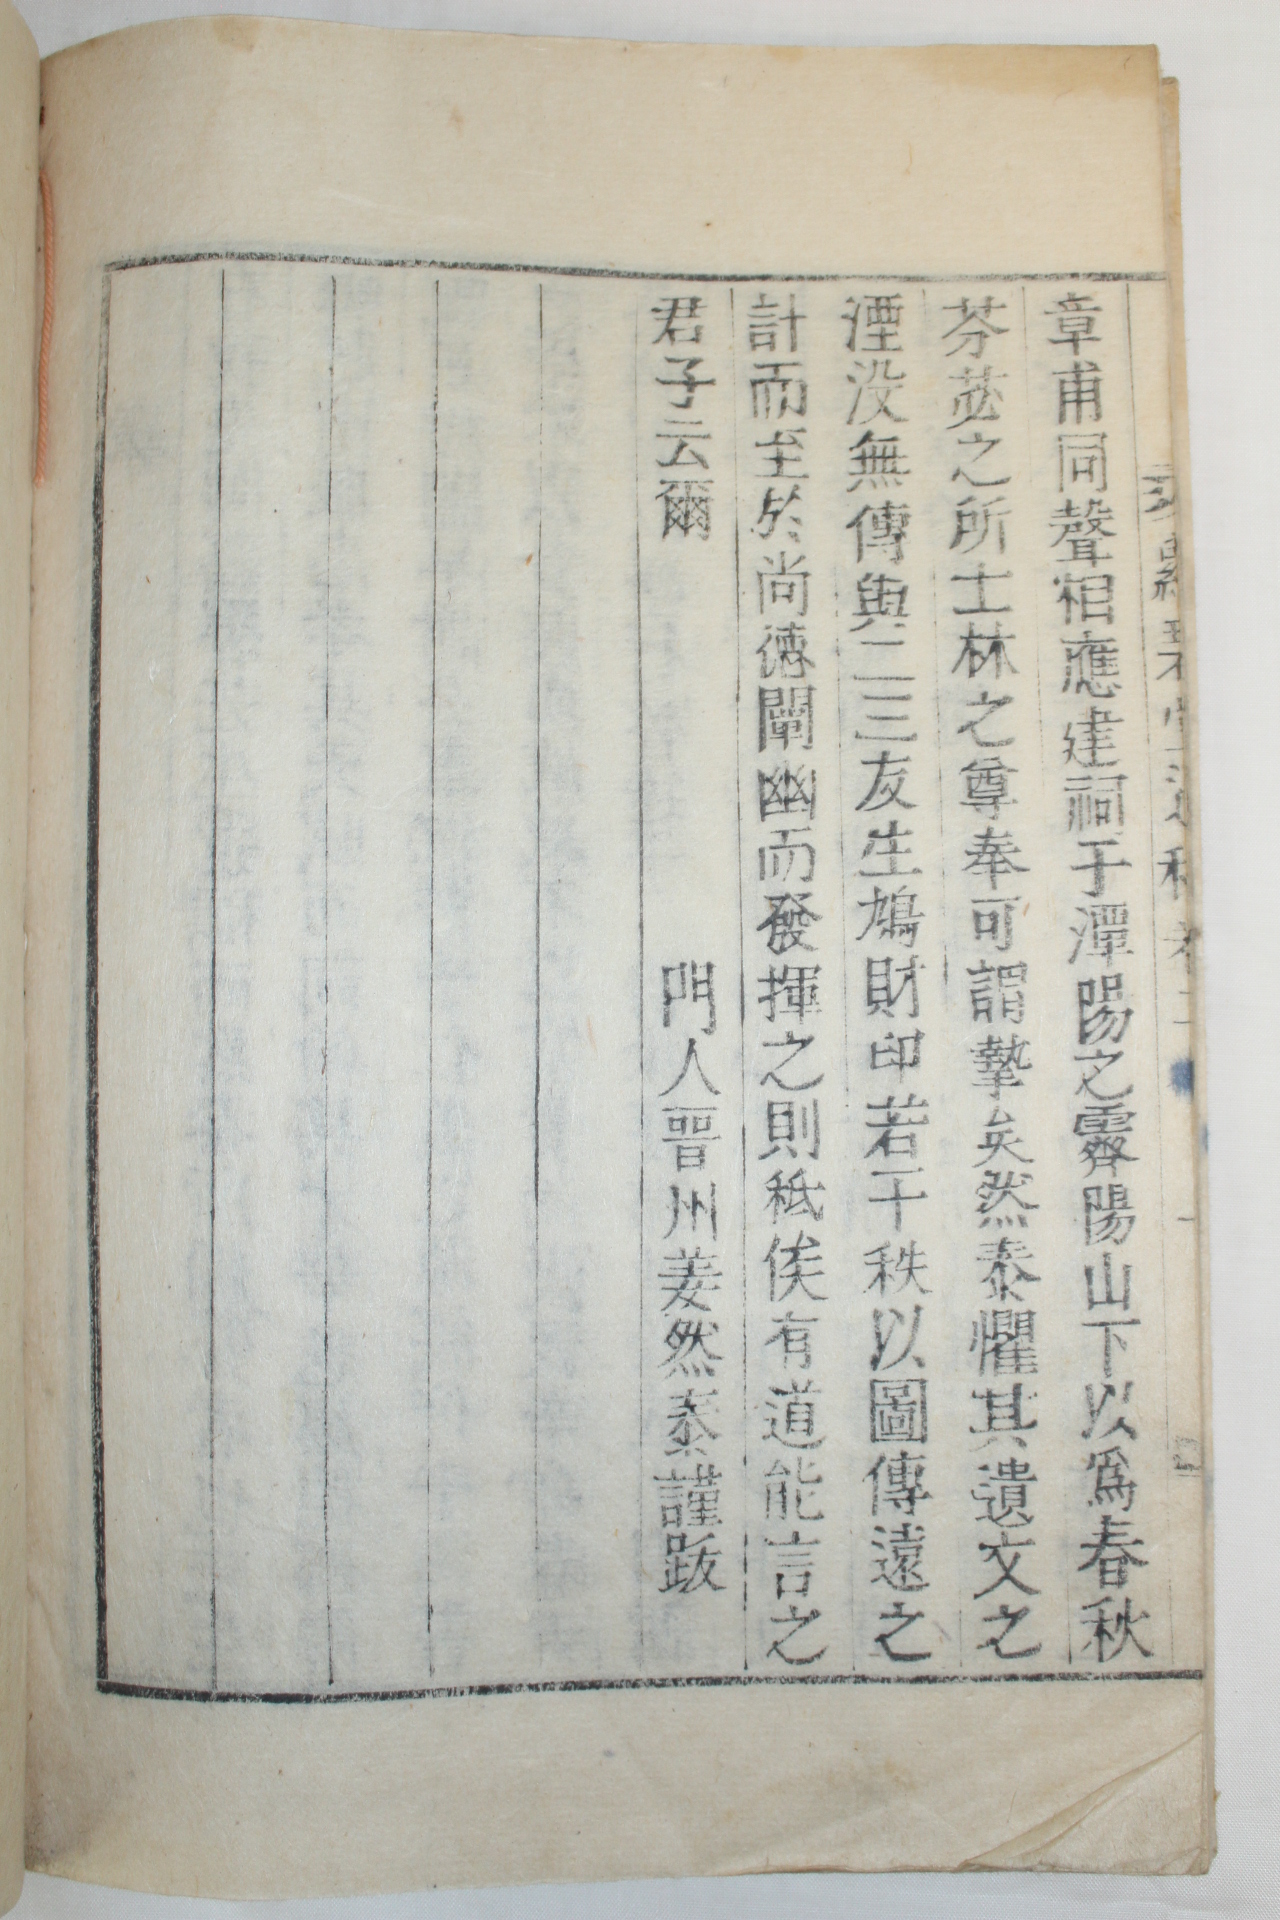 章甫同聲相應建祠于潭陽之霽陽山下以爲春秋
芬苾之所士林之尊奉可謂摯矣然泰懼其遺文之
湮没無傳與二三友生鳩財印若干秩以圖傳遠之
計而至於尚德闡幽而發揮之則秪俟有道能言之
君子云爾
門人晋州姜然泰謹跋